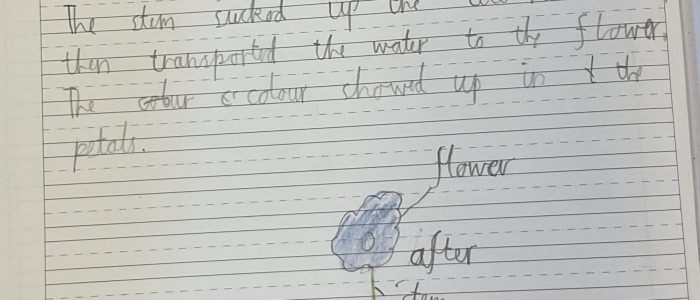 The stem sucked up the
then transported the water to the flower.
The colour showed up in the
petals.
flower
after